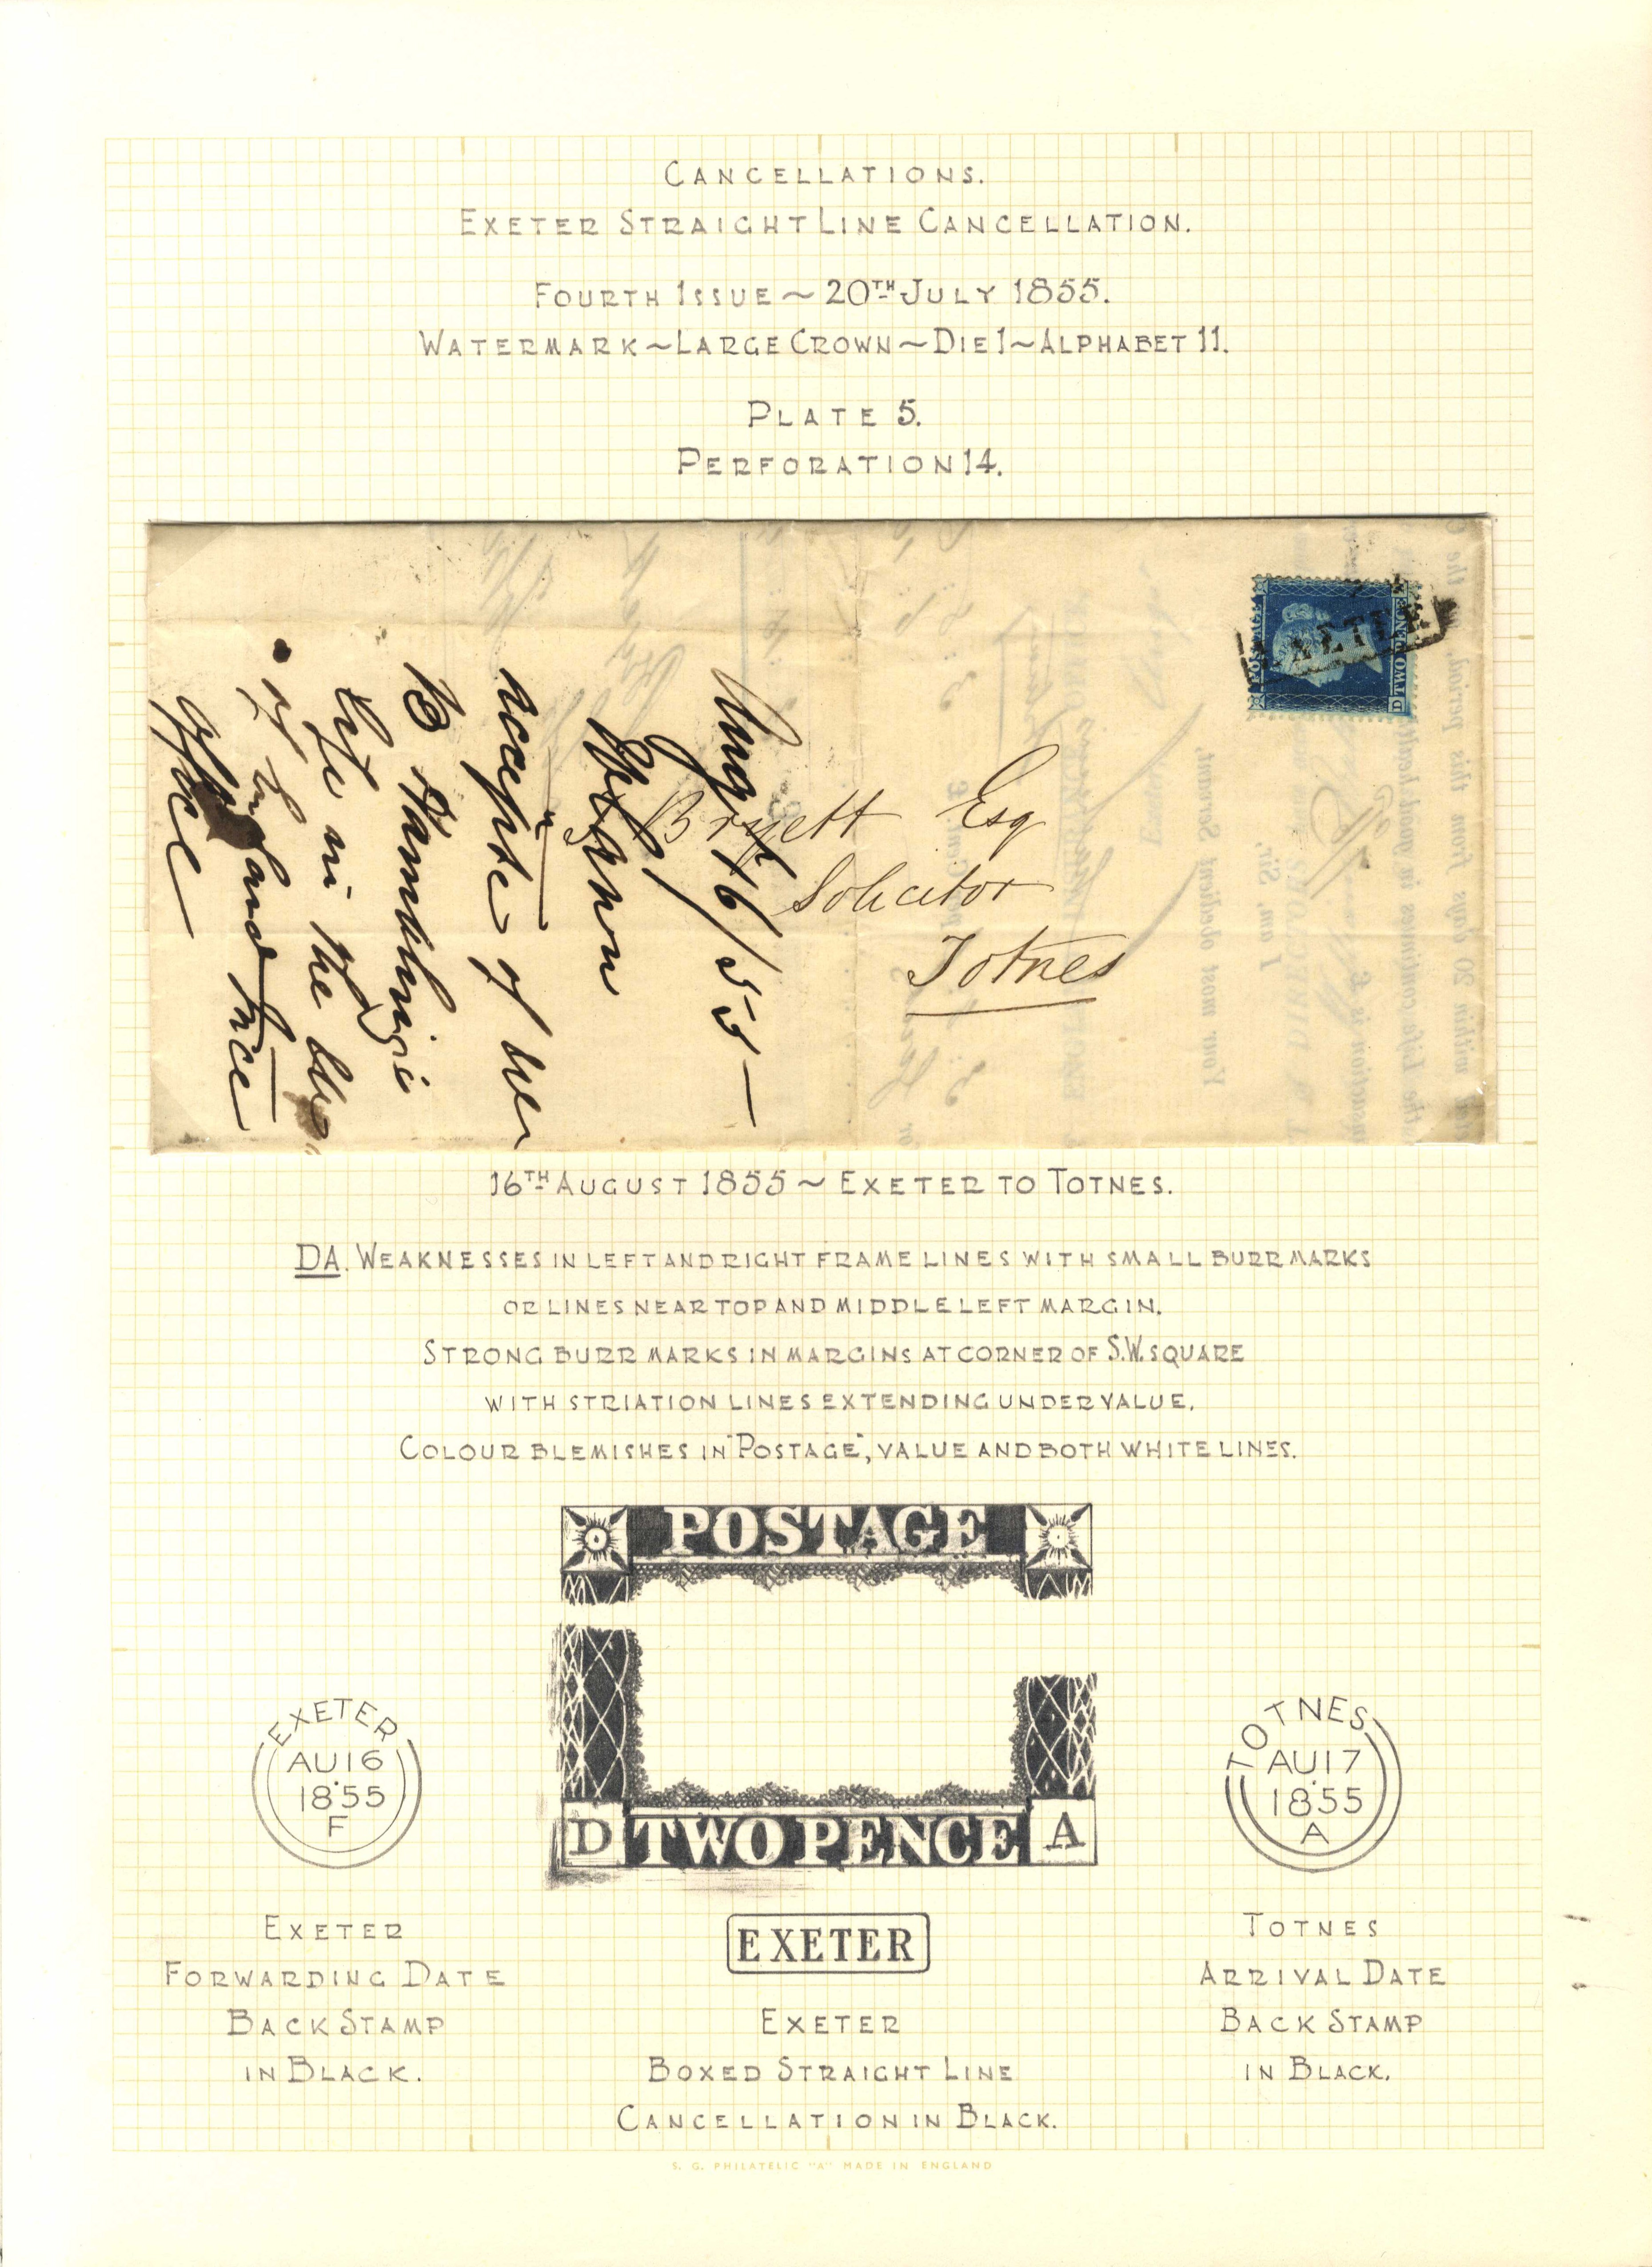 CANCELLATIONS.
EXETER STRAIGHT LINE CANCELLATION.
FOURTH ISSUE ~ 20TH JULY 1855.
WATERMARK ~ LARGE CROWN ~ DIE 1 ~ ALPHABET 11.
PLATE 5.
PERFORATION 14.
POSTAGE
TWO PENCE
D
EXETER
Esq
Solicitor
Totnes
Augt 16/55
accepte of
in the
office
Your most obedient Servant,
I am, Sir,
within 20 days from this period, the
the Life continues in good health
16TH AUGUST 1855 ~ EXETER TO TOTNES.
DA. WEAKNESSES IN LEFT AND RIGHT FRAME LINES WITH SMALL BURR MARKS
OR LINES NEAR TOP AND MIDDLE LEFT MARGIN.
STRONG BURR MARKS IN MARGINS AT CORNER OF S.W. SQUARE
WITH STRIATION LINES EXTENDING UNDER VALUE.
COLOUR BLEMISHES IN "POSTAGE", VALUE AND BOTH WHITE LINES.
POSTAGE
D TWO PENCE A
EXETER
AU 16
1855
F
TOTNES
AU 17
1855
A
EXETER
FORWARDING DATE
BACK STAMP
IN BLACK.
EXETER
EXETER
BOXED STRAIGHT LINE
CANCELLATION IN BLACK.
TOTNES
ARRIVAL DATE
BACK STAMP
IN BLACK.
S. G. PHILATELIC "A" MADE IN ENGLAND